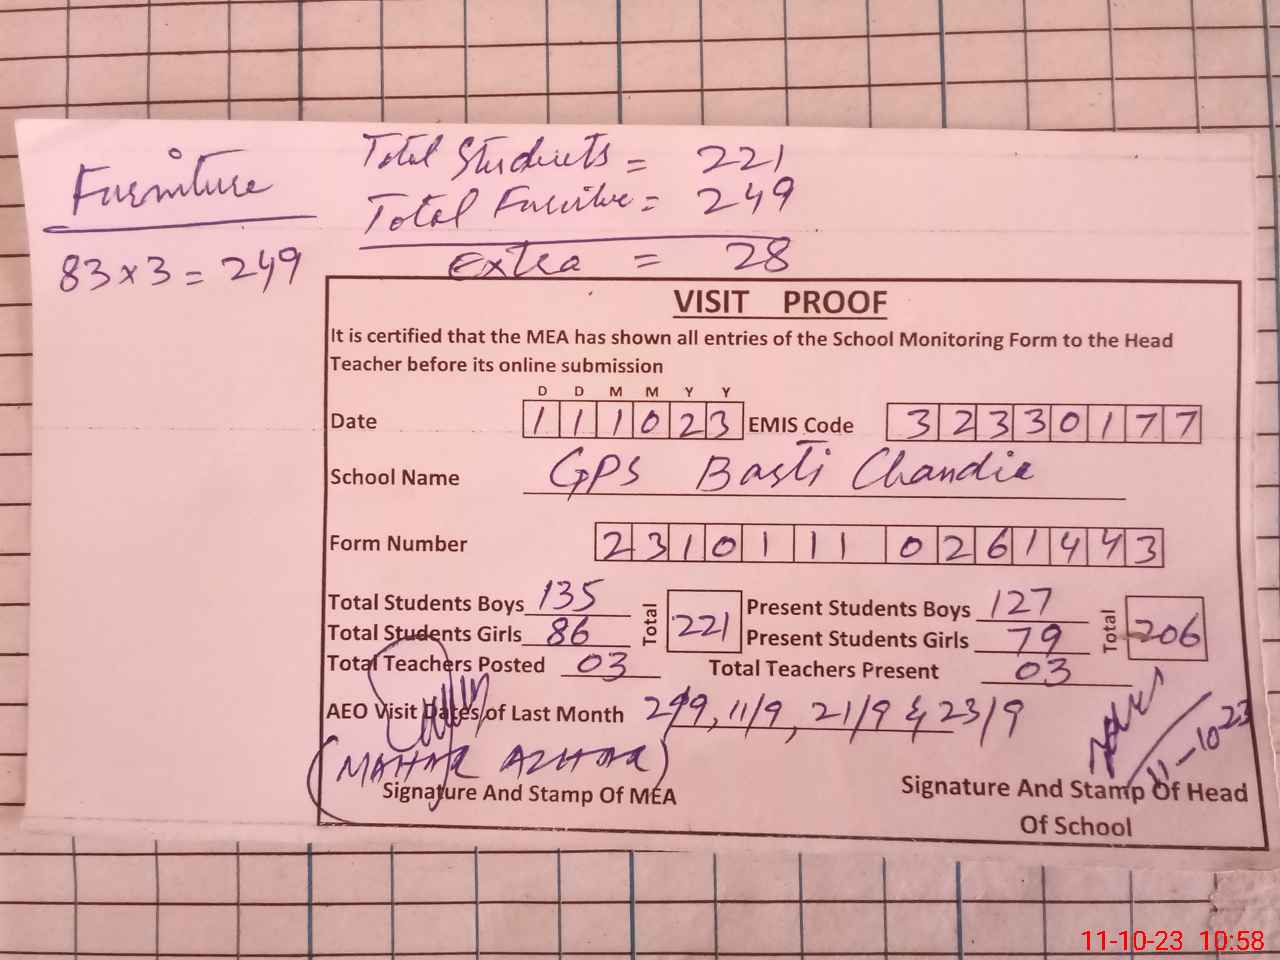 Furniture
83 x 3 = 249
Total Students = 221
Total Furniture = 249
Extra = 28
VISIT PROOF
It is certified that the MEA has shown all entries of the School Monitoring Form to the Head
Teacher before its online submission
D D M M Y Y
Date 1 1 1 0 2 3 EMIS Code 3 2 3 3 0 1 7 7
School Name GPS Basti Chandia
Form Number 2 3 1 0 1 1 1 0 2 6 1 4 4 3
Total Students Boys 135 Total 221 Present Students Boys 127 Total 206
Total Students Girls 86 Present Students Girls 79
Total Teachers Posted 03 Total Teachers Present 03
AEO Visit Dates of Last Month 2/9, 11/9, 21/9 & 23/9
(MAHAR AZHAR)
11-10-23
Signature And Stamp Of MEA
Signature And Stamp Of Head
Of School
11-10-23 10:58